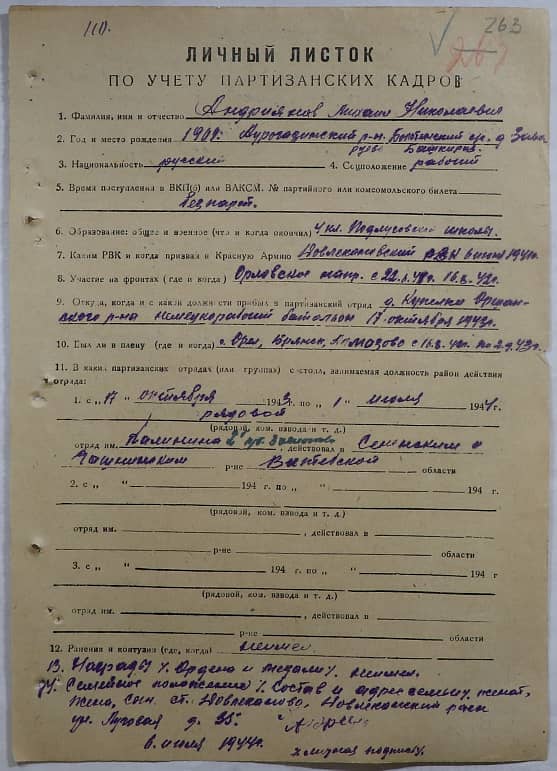 110.
263
267
ЛИЧНЫЙ ЛИСТОК
ПО УЧЕТУ ПАРТИЗАНСКИХ КАДРОВ
1. Фамилия, имя и отчество Андрияков Михаил Николаевич
2. Год и место рождения 1909. Аургазинский р-н д.
Башкирия.
3. Национальность русский 4. Соцположение рабочий
5. Время поступления в ВКП(б) или ВЛКСМ, № партийного или комсомольского билета
Беспарт.
6. Образование: общее и военное (что и когда окончил) 4 кл. школы.
7. Каким РВК и когда призван в Красную Армию РВК 1941г.
8. Участие на фронтах (где и когда) Орловское напр. с
9. Откуда, когда и с какой должности прибыл в партизанский отряд д.
р-на батальон 17 октября 1943г.
10. Был ли в плену (где и когда) г. Орел, Брянск,
11. В каких партизанских отрядах (или группах) состоял, занимаемая должность район действия
отряда:
1. с „17 “ октября 1943 г. по „1 “ июля 1944 г.
рядовой
(рядовой, ком. взвода и т. д.)
отряд им. Калинина , действовал в Сененским и
Чашникским р-не Витебской области
2. с „ “ 194 г. по „ “ 194 г.
(рядовой, ком. взвода и т. д.)
отряд им. , действовал в
р-не области
3. с „ “ 194 г. по „ “ 194 г.
(рядовой, ком. взвода и т. д.)
отряд им. , действовал в
р-не области
12. Ранения и контузии (где, когда) не имел
13. Награды / Ордена и медали / не имел.
14. Семейное положение / Состав и адрес семьи / женат,
жена, сын. ст.
ул. Луговая д. 35.
6 июля 1944г.
х личная подпись.